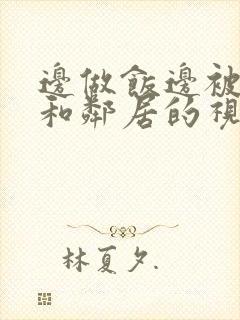 邊做飯邊被
和鄰居的視
林夏夕.